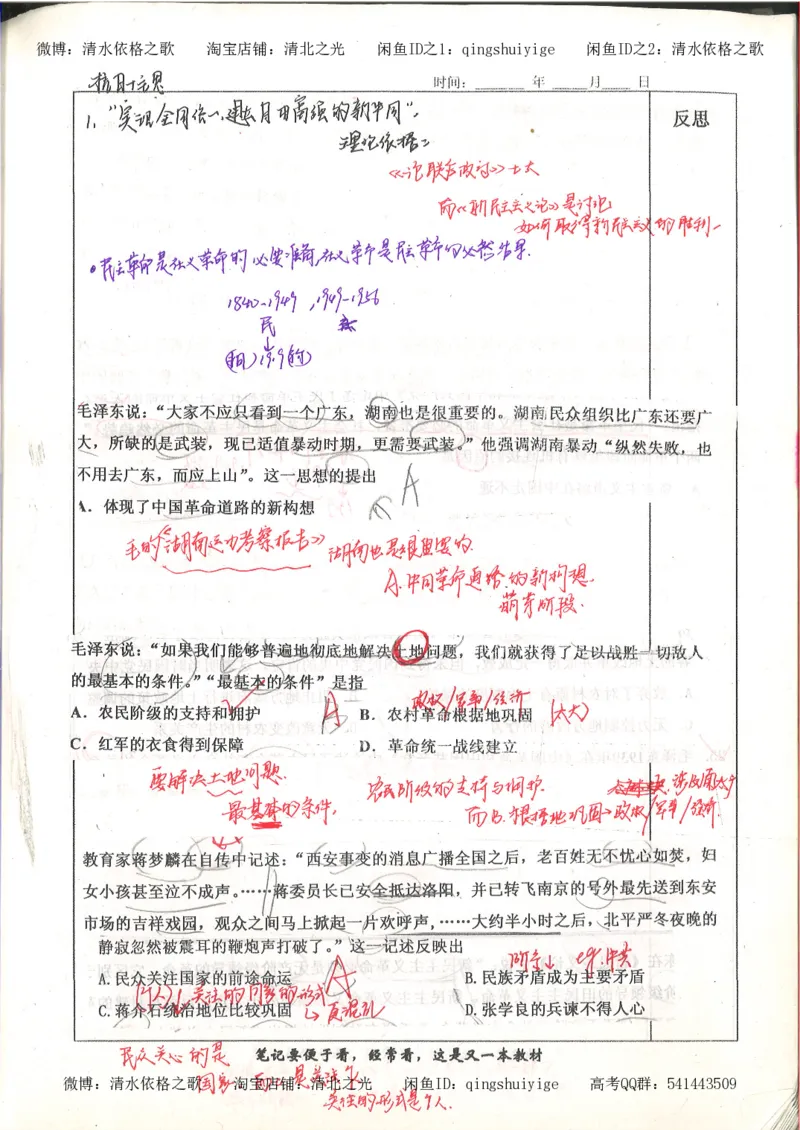 微博：清水依格之歌 淘宝店铺：清北之光 闲鱼ID之1：qingshuiyige 闲鱼ID之2：清水依格之歌
时间：______年____月____日
反思
1、“实现全国统一、建立自由高强的新中国”，
理论依据：
《论联合政府》七大
而《新民主主义论》是讨论
如何取得新民主主义的胜利
民主革命是社会主义革命的必要准备，社会主义革命是民主革命的必然结果.
1840-1949，1949-1956
民 社
毛泽东说：“大家不应只看到一个广东，湖南也是很重要的。湖南民众组织比广东还要广
大，所缺的是武装，现已适值暴动时期，更需要武装。”他强调湖南暴动“纵然失败，也
不用去广东，而应上山”。这一思想的提出
A
A．体现了中国革命道路的新构想
毛的《湖南运动考察报告》 湖南也是很重要的.
A.中国革命道路的新构想.
萌芽阶段.
毛泽东说：“如果我们能够普遍地彻底地解决土地问题，我们就获得了足以战胜一切敌人
的最基本的条件。”“最基本的条件”是指
政权/军事/经济
A．农民阶级的支持和拥护 A B．农村革命根据地巩固 (太大)
C．红军的衣食得到保障 D．革命统一战线建立
要解决土地问题.
最基本的条件，
农民阶级的支持与拥护.
而B.根据地巩固→政权/军事/经济.
教育家蒋梦麟在自传中记述：“西安事变的消息广播全国之后，老百姓无不忧心如焚，妇
女小孩甚至泣不成声。……蒋委员长已安全抵达洛阳，并已转飞南京的号外最先送到东安
市场的吉祥戏园，观众之间马上掀起一片欢呼声，……大约半小时之后，北平严冬夜晚的
静寂忽然被震耳的鞭炮声打破了。”这一记述反映出
A.民众关注国家的前途命运 A B.民族矛盾成为主要矛盾
C.蒋介石统治地位比较巩固 D.张学良的兵谏不得人心
民众关心的是
国家
关注的形式是个人.
笔记要便于看，经常看，这是又一本教材
微博：清水依格之歌 淘宝店铺：清北之光 闲鱼ID：qingshuiyige 高考QQ群：541443509